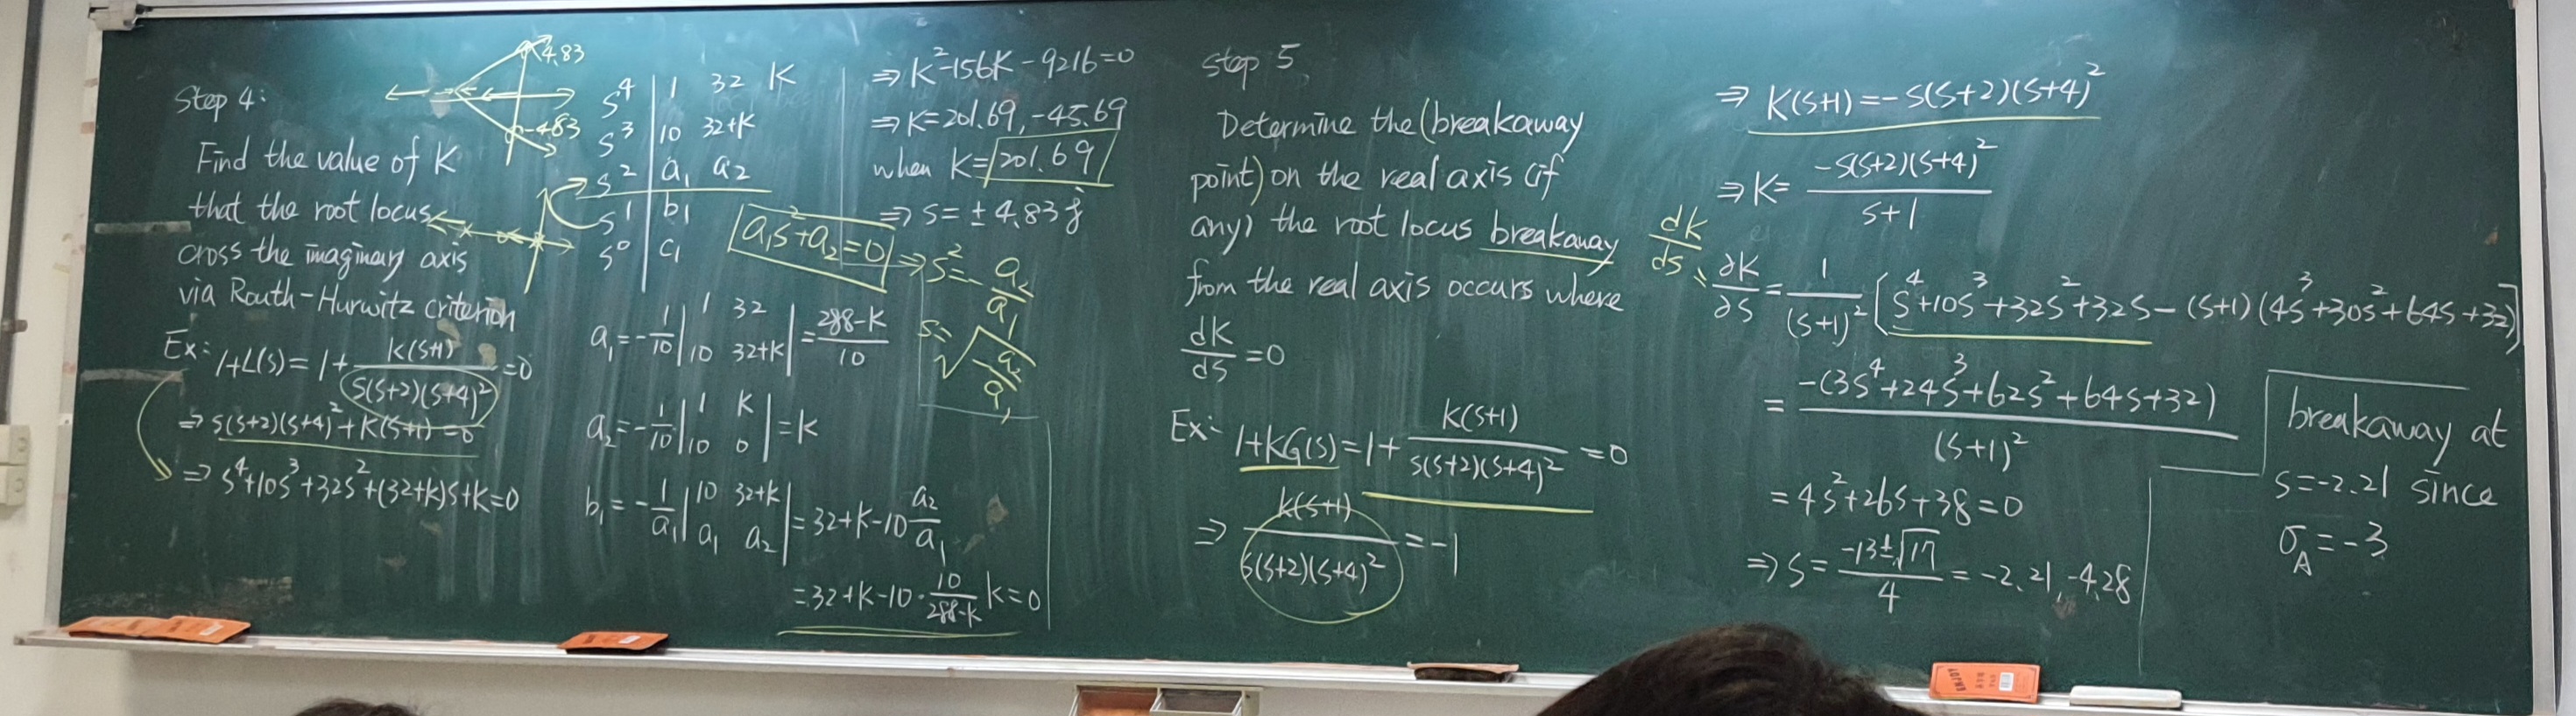 Step 4:
Find the value of K
that the root locus
cross the imaginary axis
via Routh-Hurwitz criterion
Ex: 1+L(s)=1+\frac{K(s+1)}{s(s+2)(s+4)^2}=0
⇒ s(s+2)(s+4)^2+K(s+1)=0
⇒ s^4+10s^3+32s^2+(32+K)s+K=0
4.83
-4.83
s^4 | 1 32 K
s^3 | 10 32+K
s^2 | a_1 a_2
s^1 | b_1
s^0 | c_1
a_1s^2+a_2=0 ⇒ s^2=-\frac{a_2}{a_1}
s=\sqrt{-\frac{a_2}{a_1}}
a_1=-\frac{1}{10}\begin{vmatrix}1 & 32\\10 & 32+K\end{vmatrix}=\frac{288-K}{10}
a_2=-\frac{1}{10}\begin{vmatrix}1 & K\\10 & 0\end{vmatrix}=K
b_1=-\frac{1}{a_1}\begin{vmatrix}10 & 32+K\\a_1 & a_2\end{vmatrix}=32+K-10\frac{a_2}{a_1}
=32+K-10·\frac{10}{288-K}K=0
⇒ K^2-156K-9216=0
⇒ K=201.69, -45.69
when K=201.69
⇒ s=±4.83j
Step 5
Determine the (breakaway
point) on the real axis (if
any) the root locus breakaway
from the real axis occurs where
\frac{dK}{ds}=0
Ex: 1+KG(s)=1+\frac{K(s+1)}{s(s+2)(s+4)^2}=0
⇒ \frac{K(s+1)}{s(s+2)(s+4)^2}=-1
⇒ K(s+1)=-s(s+2)(s+4)^2
⇒ K=\frac{-s(s+2)(s+4)^2}{s+1}
\frac{dK}{ds}、\frac{∂K}{∂s}=\frac{1}{(s+1)^2}[s^4+10s^3+32s^2+32s-(s+1)(4s^3+30s^2+64s+32)]
=\frac{-(3s^4+24s^3+62s^2+64s+32)}{(s+1)^2}
=4s^2+26s+38=0
⇒ s=\frac{-13±\sqrt{17}}{4}=-2.21, -4.28
breakaway at
s=-2.21 since
σ_A=-3